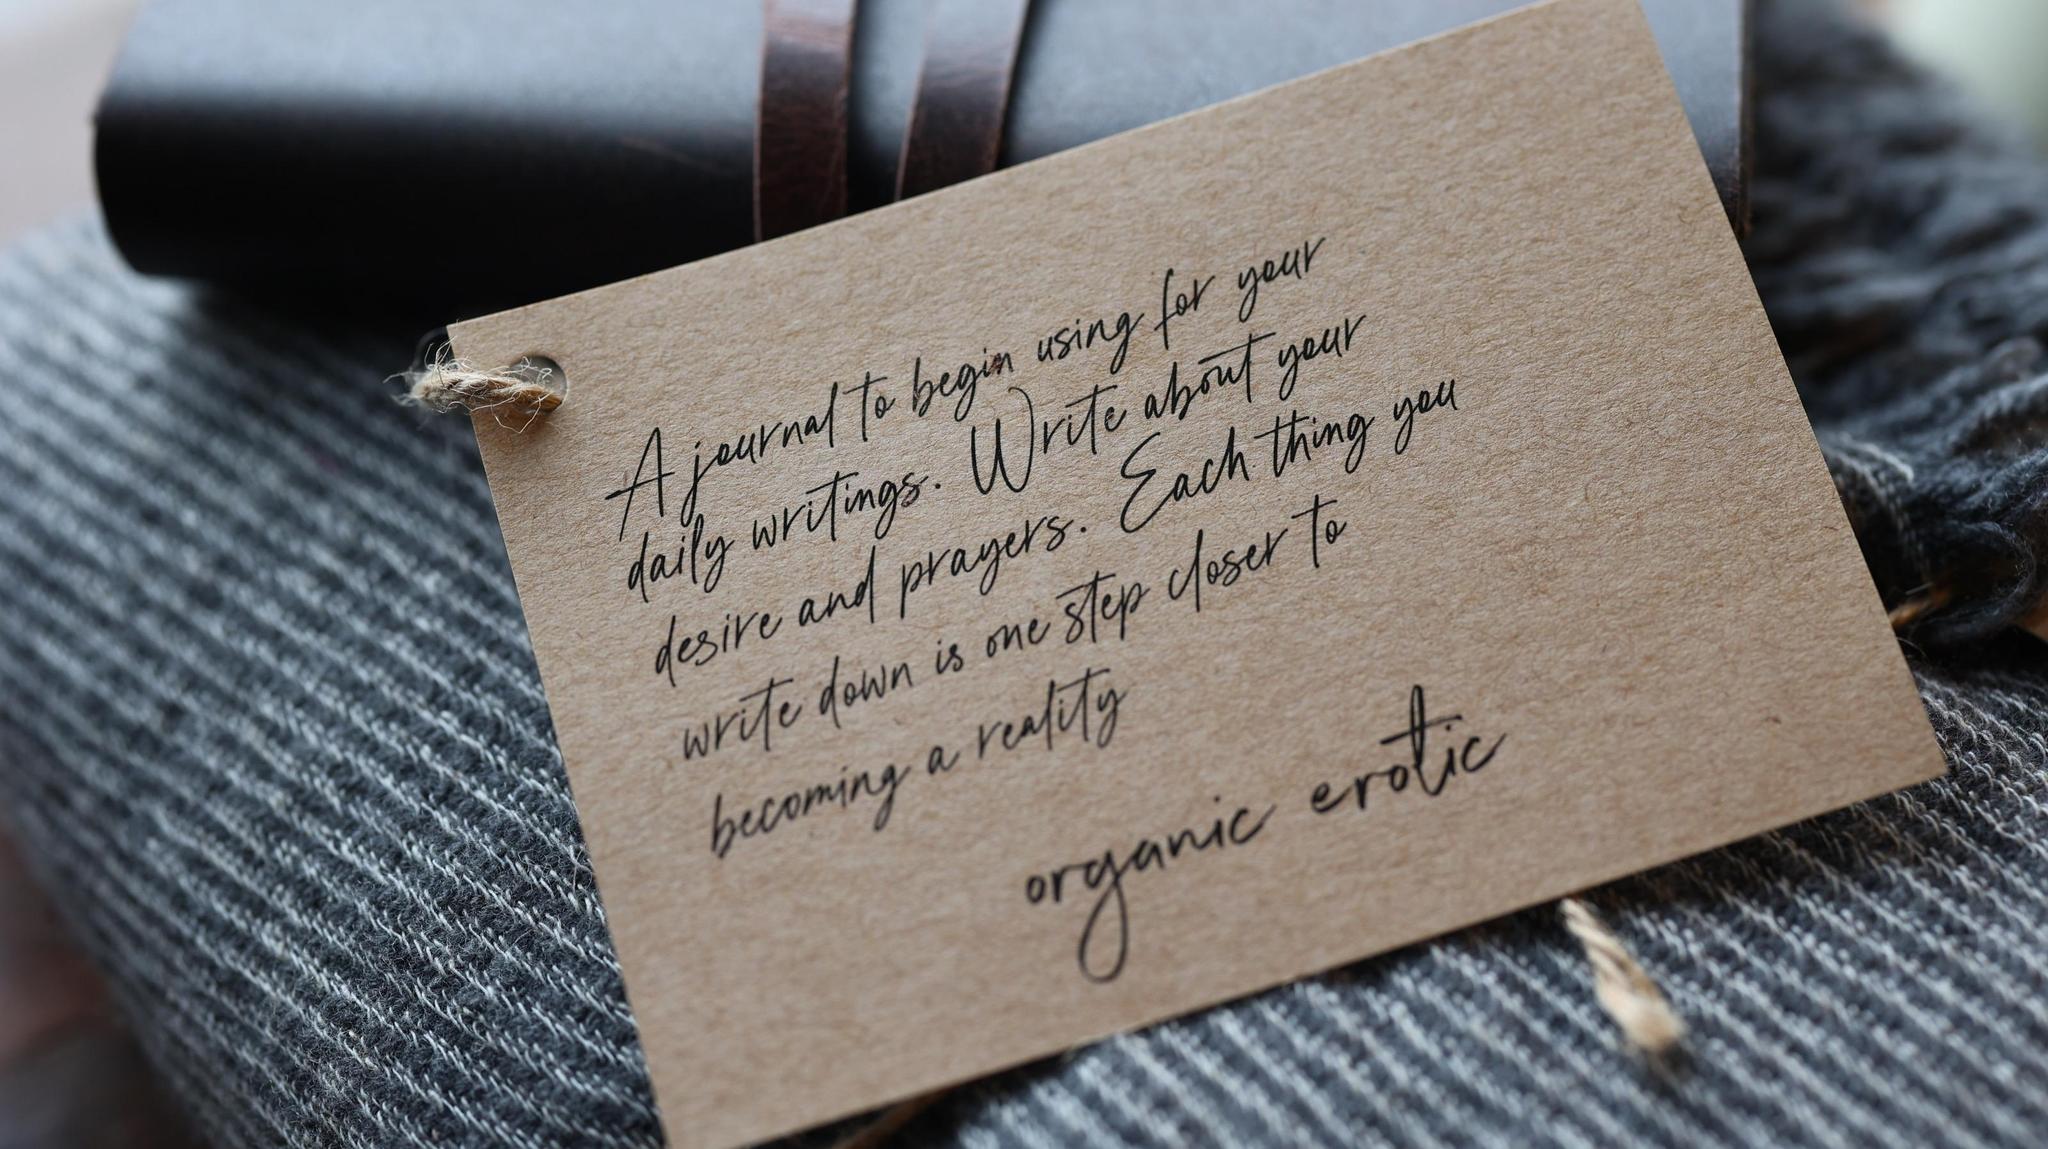 A journal to begin using for your
daily writings. Write about your
desire and prayers. Each thing you
write down is one step closer to
becoming a reality
organic erotic